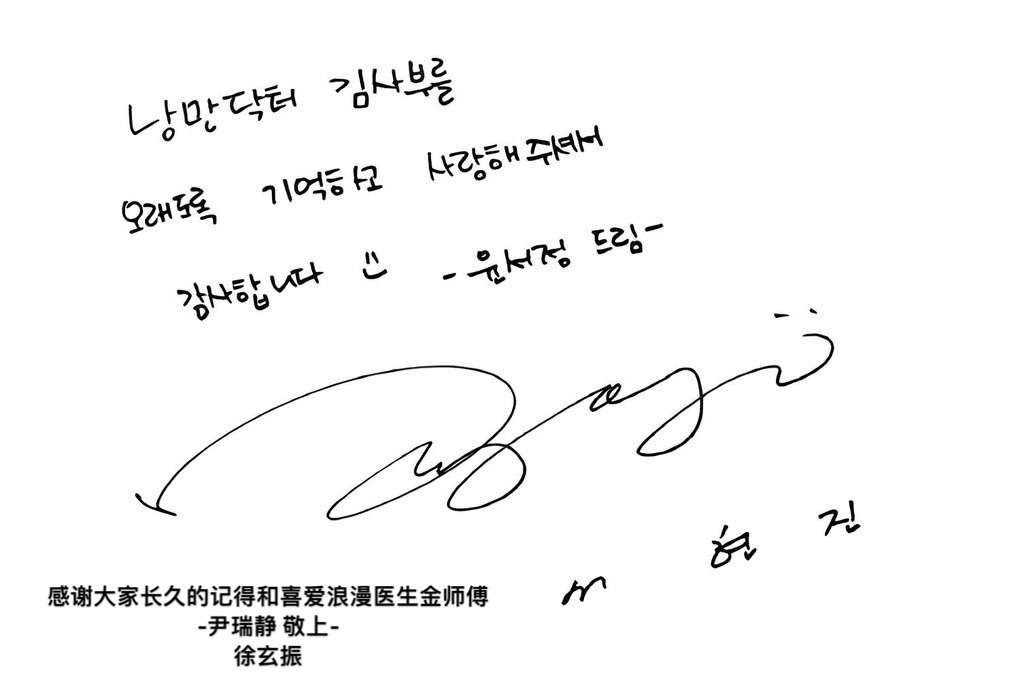 낭만닥터 김사부를
오래도록 기억하고 사랑해주셔서
감사합니다 :) -윤서정 드림-
서 현 진
感谢大家长久的记得和喜爱浪漫医生金师傅
-尹瑞静 敬上-
徐玄振